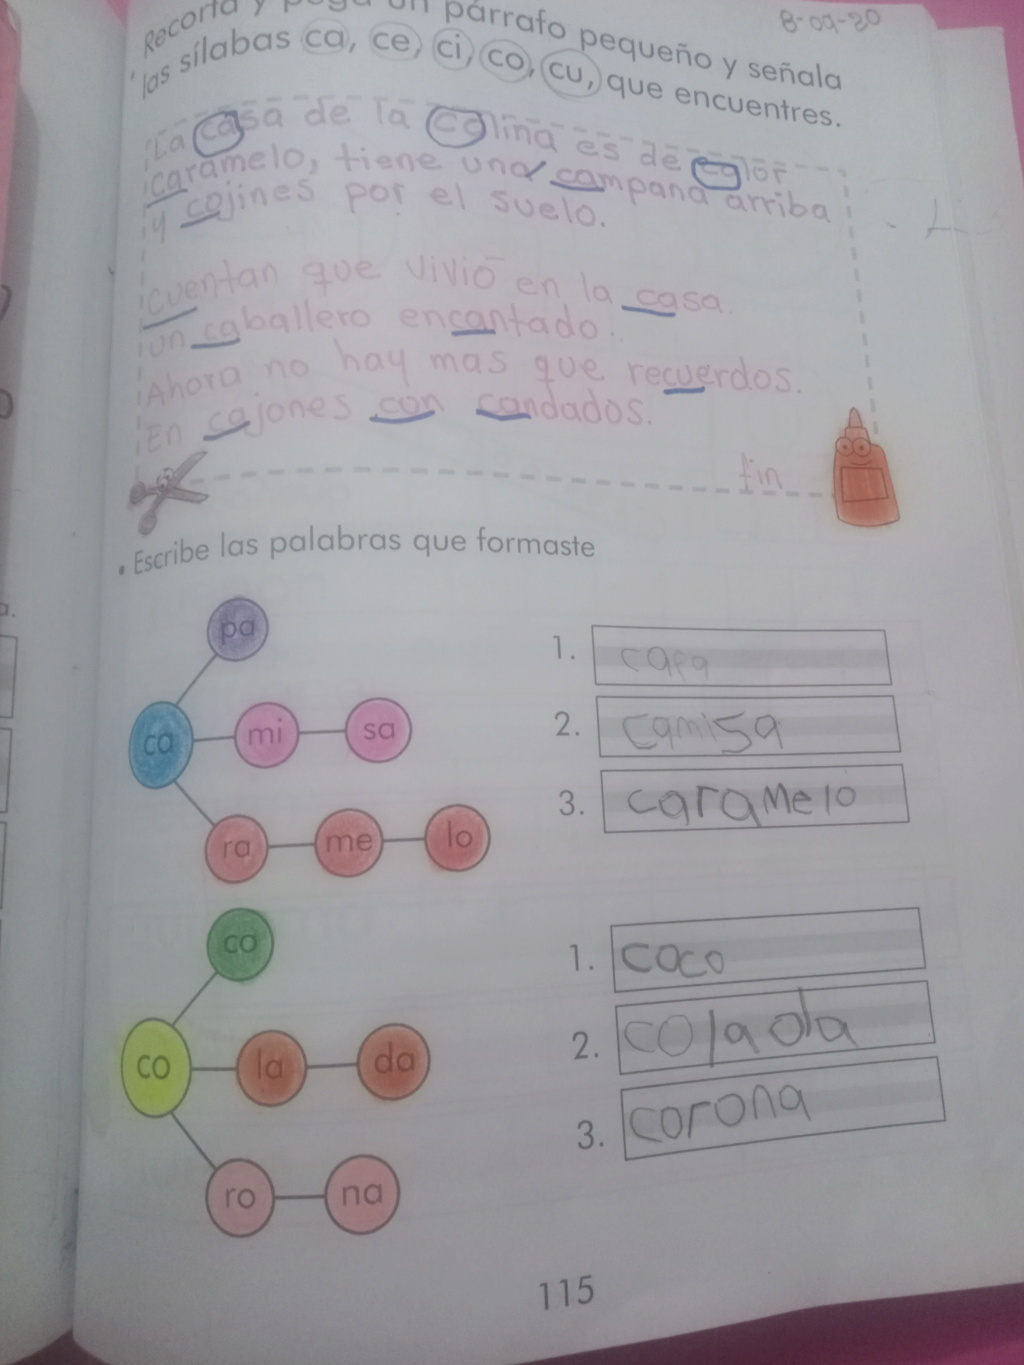 8-09-20
Recorta y pega un párrafo pequeño y señala
las sílabas ca, ce, ci, co, cu, que encuentres.
La casa de la colina es de color
caramelo, tiene una campana arriba
y cojines por el suelo.
cuentan que vivió en la casa.
un caballero encantado.
Ahora no hay mas que recuerdos.
En cajones con candados.
fin
Escribe las palabras que formaste
pa
ca mi sa
ra me lo
1. capa
2. camisa
3. caramelo
co
co la da
ro na
1. coco
2. colada
3. corona
115